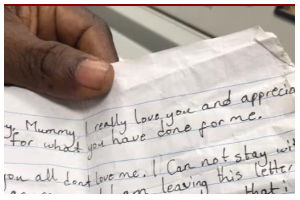 y, Mummy I really love you and apprecia
for what you have done for me.
you all dont love me. I Can not stay wi
I am leaving this letter
that i